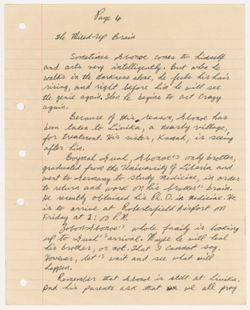 Page 4
The Mixed-Up Brain
Sometimes Aborse comes to himself
and acts very intelligently. But when he
walks in the darkness alone, he feels his hair
rising, and right before him he will see
the genie again. Then he begins to act crazy
again.
Because of this reason, Aborse has
been taken to Livika, a nearby village,
for treatment. His sister, Kamah, is seeing
after him.
Guzeah, Aborse's only brother,
graduated from the University of Liberia and
went to Germany to study medicine, in order
to return and work on his brother's brain.
He recently obtained his Ph.D in medicine. He
is to arrive at Robertsfield Airport on
Friday at 2:00 P.M.
Aborse's whole family is looking
up to arrival. Maybe he will heal
his brother, or not. That I cannot say.
However, let's wait and see what will
happen.
Remember that Aborse is still at Livika.
And his parents ask that we all pray